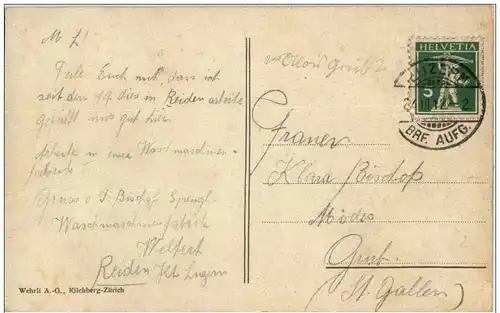 M. L!
Teile Euch mit dass ich
seit den 19. dies in Reiden arbeite
gefällt mir gut hier.
Arbeite in einer Waschmaschinen-
fabrik
Gruss v. J. Bischof Spengl.
Waschmaschinenfabrik
Reiden Kt. Luzern
Wehrli A.-G., Kilchberg-Zürich
Grub
HELVETIA
5
LUZERN
2
BRF. AUFG.
Frauen
Klara Bischof
Modes
Grub.
(St. Gallen)